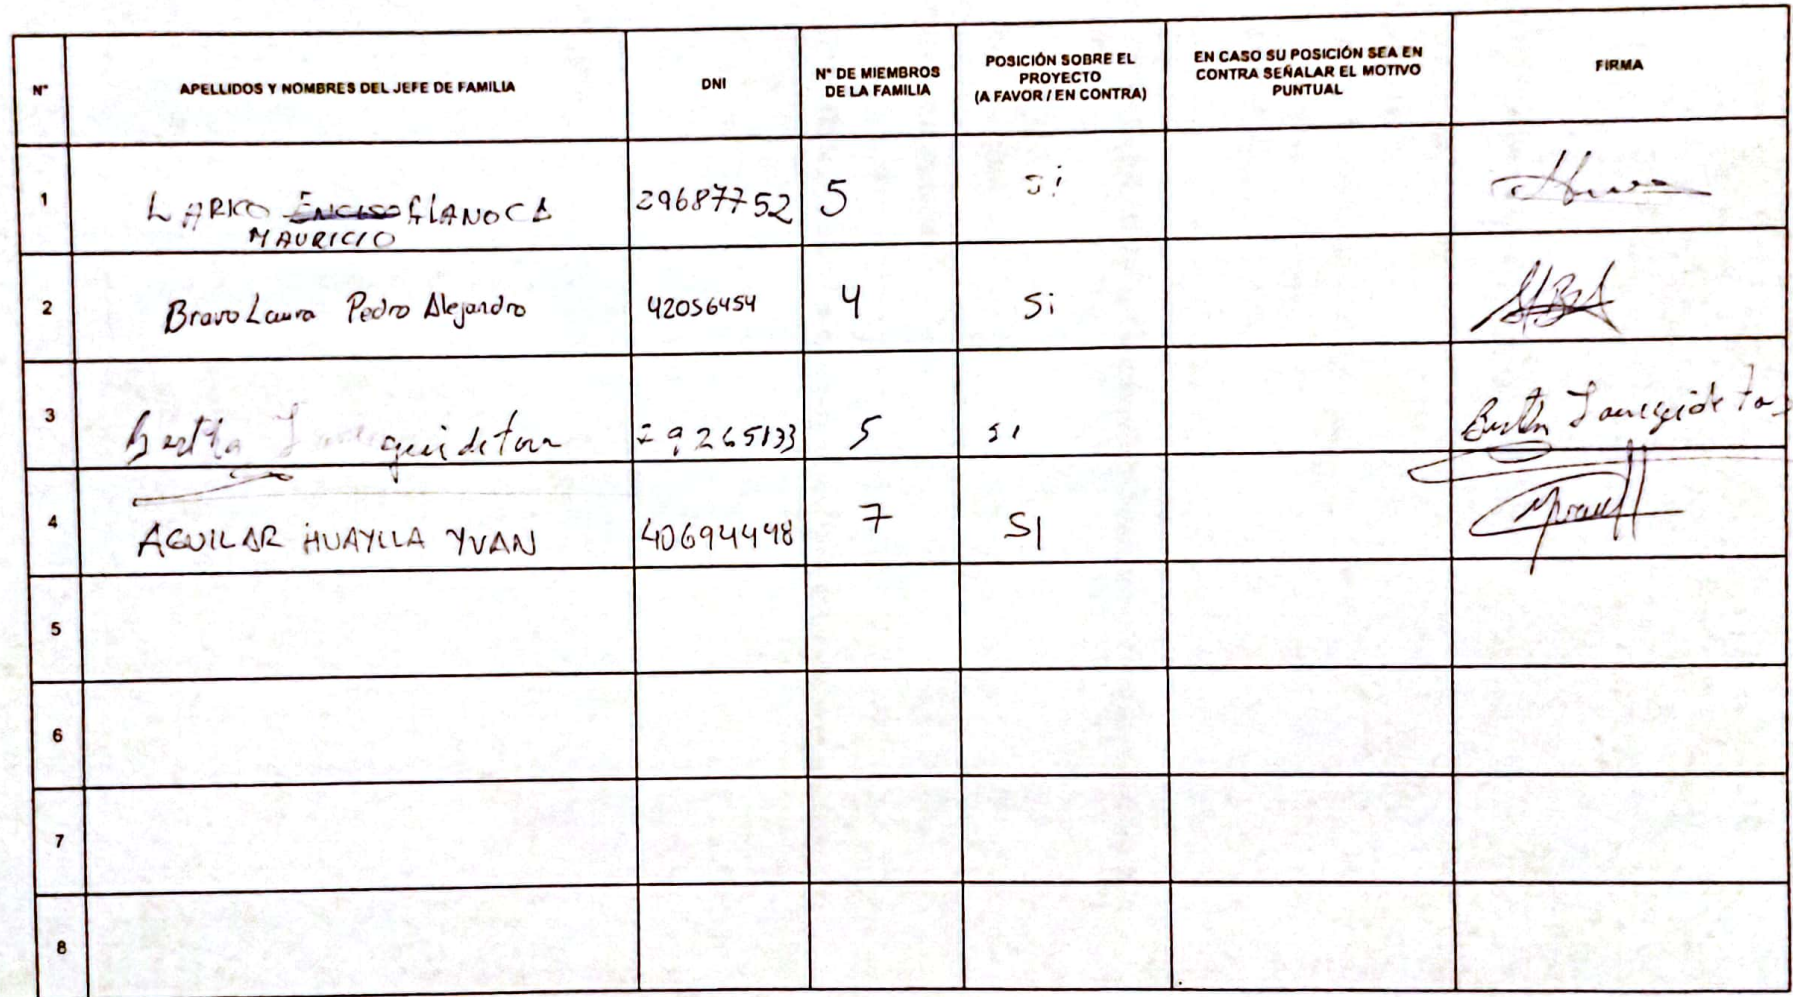 N° APELLIDOS Y NOMBRES DEL JEFE DE FAMILIA DNI N° DE MIEMBROS DE LA FAMILIA POSICIÓN SOBRE EL PROYECTO (A FAVOR / EN CONTRA) EN CASO SU POSICIÓN SEA EN CONTRA SEÑALAR EL MOTIVO PUNTUAL FIRMA
1 LARICO 29687752 5 si
MAURICIO
2 Bravo Laura Pedro Alejandro 42056454 4 Si
3 Bertha 29265133 5 si Bertha
4 AGUILAR HUAYLLA YVAN 40694498 7 SI
5
6
7
8